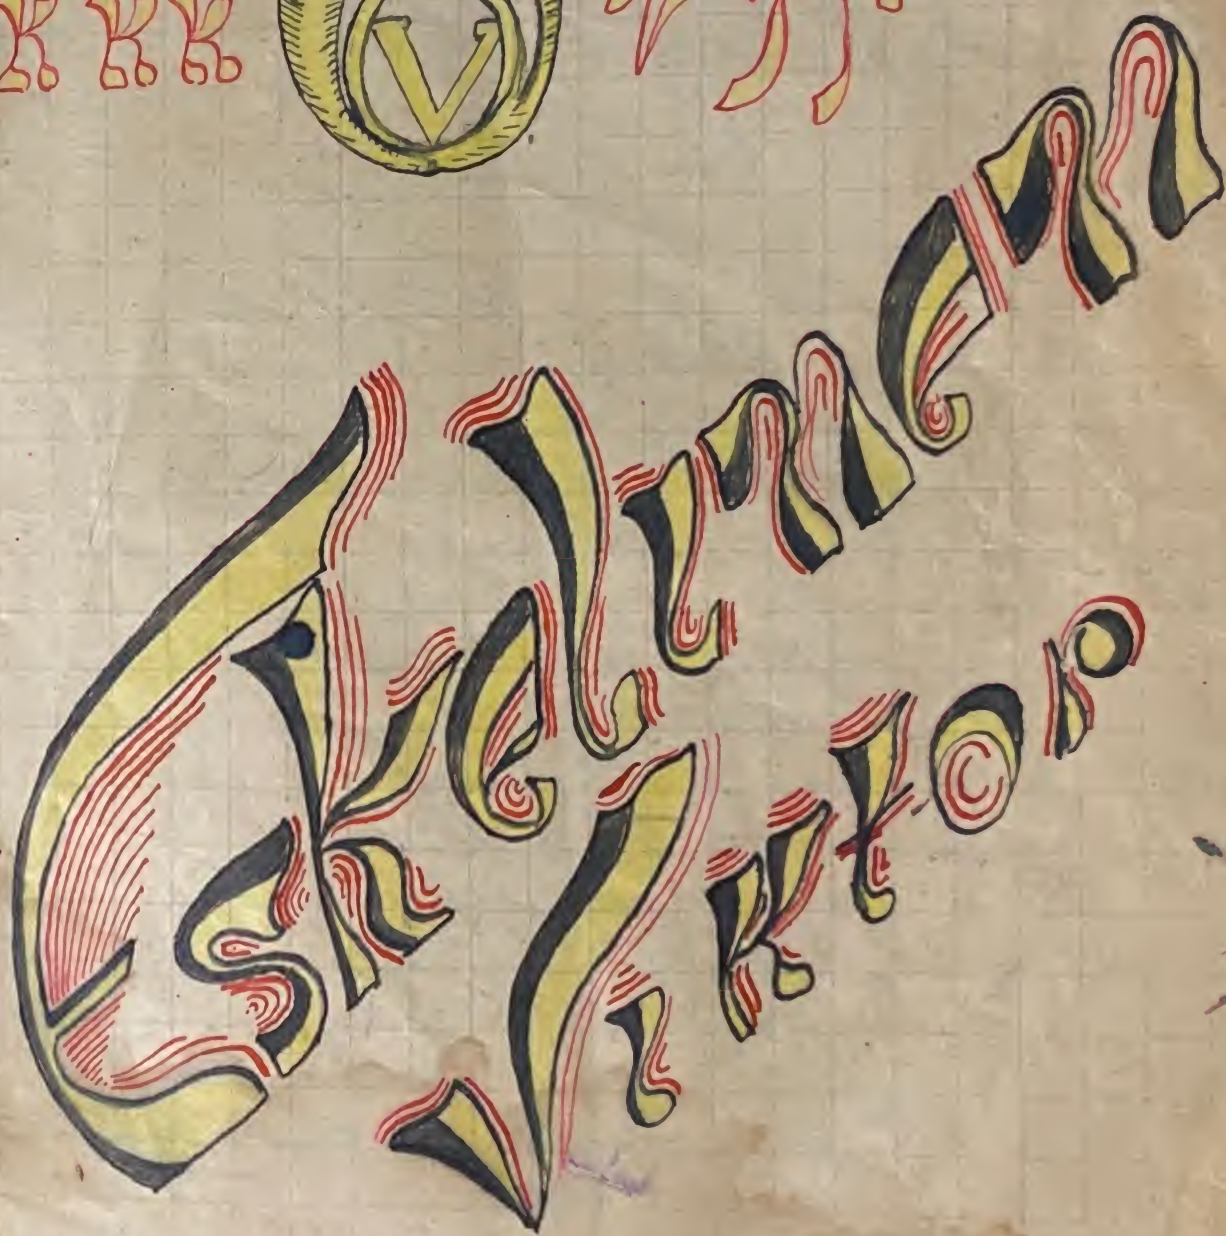 V
Eskelinen
Viktor